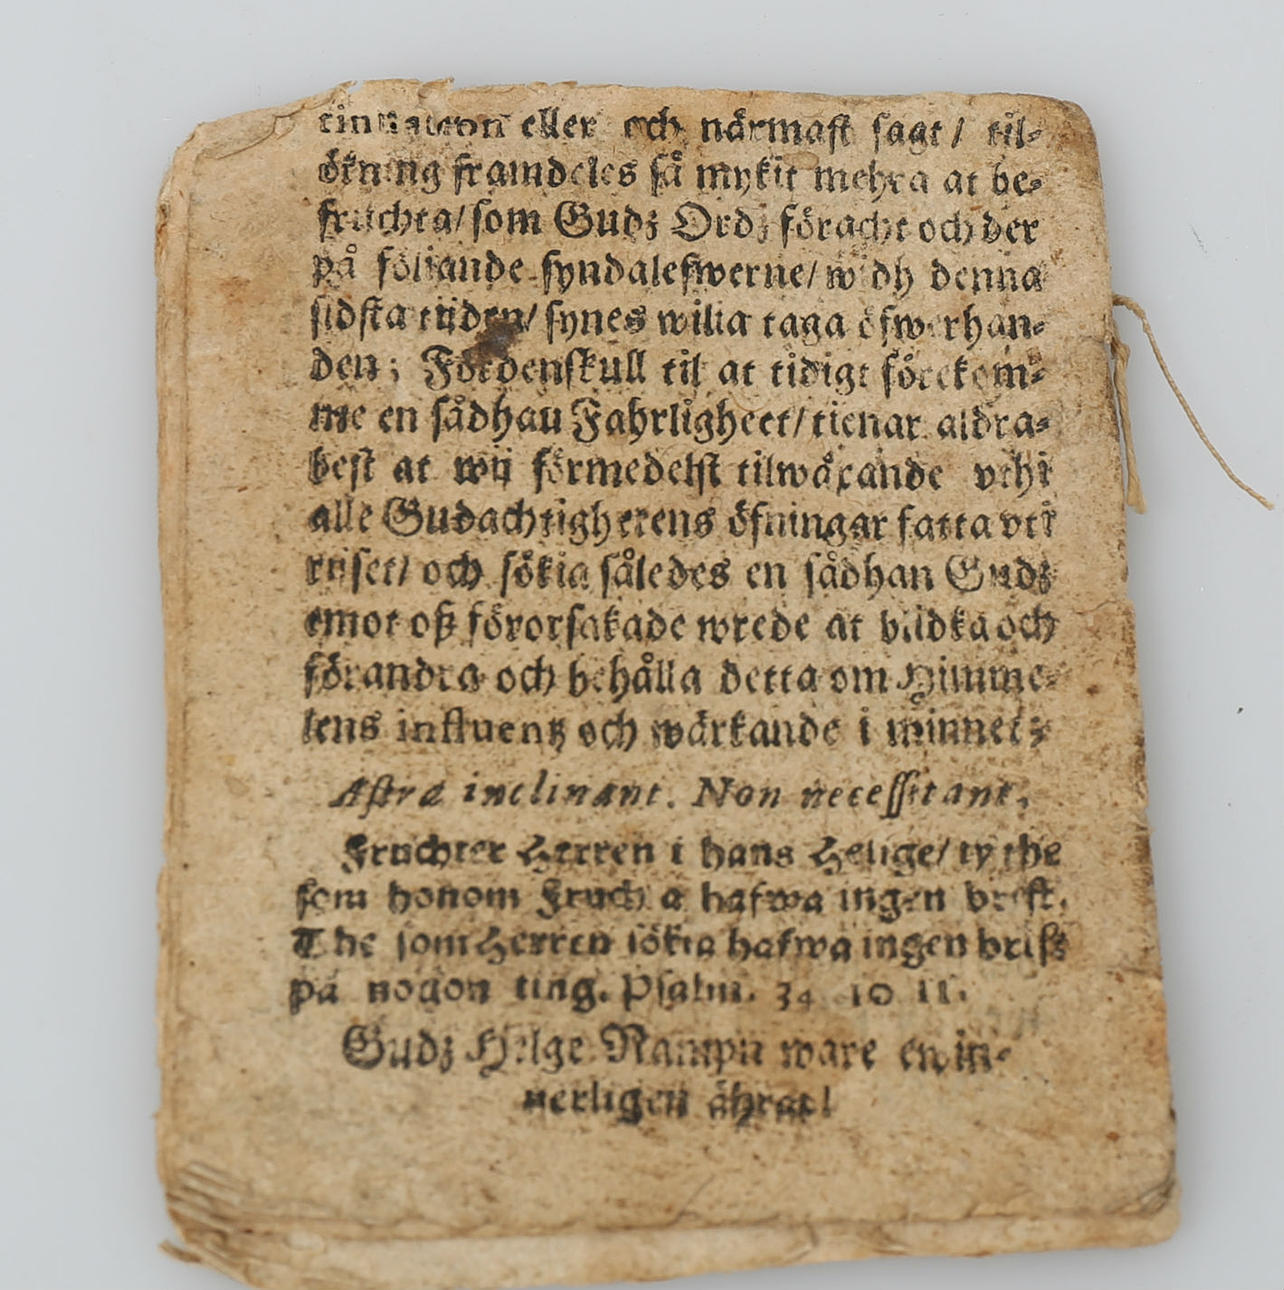 eller och närmast sagt / til-
ökning framdeles så mykit mehra at be-
fruchta / som Gudz Ordz föracht och der
på följande syndalefwerne / widh denna
sidsta tijden / synes wilia taga öfwerhan-
den; Fördenskull til at tidigt förekom-
me en sådhan Fahrligheet / tienar aldra-
best at wij förmedelst tilwäxande vthi
alle Gudachtigheetens öfningar fatta vti
rijset / och sökia således en sådhan Gudz
emot oß förorsakade wrede at blidka och
förandra och behålla detta om Himme-
lens influentz och wärkande i minnet;
Astra inclinant. Non necessitant.
Fruchter Herren i hans Helige / ty the
som honom Fruchta hafwa ingen brest.
The som Herren sökia hafwa ingen brist
på nogon ting. Psalm. 34 10 11.
Gudz Helge Nampn ware ewin-
nerligen ährat!